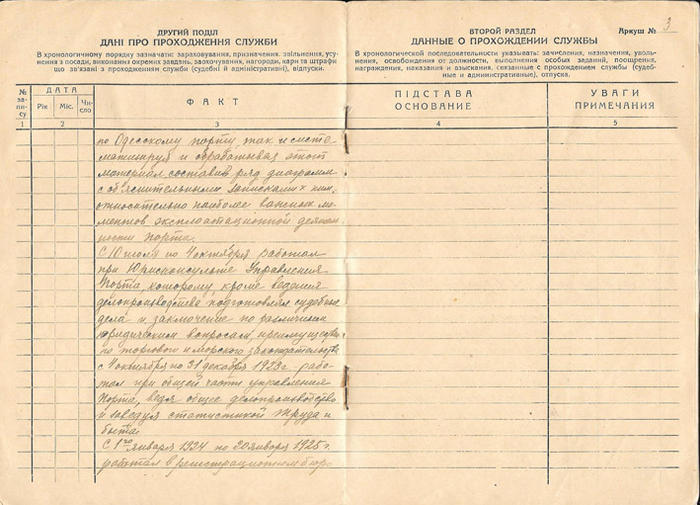 ДРУГИЙ ПОДІЛ
ДАНІ ПРО ПРОХОДЖЕННЯ СЛУЖБИ
В хронологічному порядку зазначати: зарахування, призначення, звільнення, усу-
нення з посади, виконання окремих завдань, заохочування, нагороди, кари та штрафи
що зв'язані з проходженням служби (судебні й адміністративні), відпуски.
ВТОРОЙ РАЗДЕЛ
ДАННЫЕ О ПРОХОЖДЕНИИ СЛУЖБЫ
Аркуш № 3
В хронологической последовательности указывать: зачисления, назначения, увольне-
ния, освобождения от должности, выполнения особых заданий, поощрения,
награждения, наказания и взыскания, связанные с прохождением службы (судеб-
ные и административные), отпуска.
№ за-пи-су
ДАТА
Рік Міс. Чи-сло
ФАКТ
ПІДСТАВА
ОСНОВАНИЕ
УВАГИ
ПРИМЕЧАНИЯ
1 2 3 4 5
по Одесскому порту так и систе-
матизируя и обрабатывая этот
материал составив ряд диаграмм
с объяснительными записками к ним,
относительно наиболее важных мо-
ментов эксплоатационной деятель-
ности Порта.
С 10 июля по 4 октября работал
при Юрисконсульте Управления
Порта, которому, кроме ведения
делопроизводства, подготовлял судебные
дела и заключение по различным
юридическим вопросам преимуществ.
по торгового и морского законодательств
с 4 октября по 31 декабря 1923 г. рабо-
тал при общей части управления
Порта, ведя общее делопроизводство
и заведуя статистикой труда и
быта.
С 1го января 1924 по 20 января 1925 г.
работал в регистрационном бюро